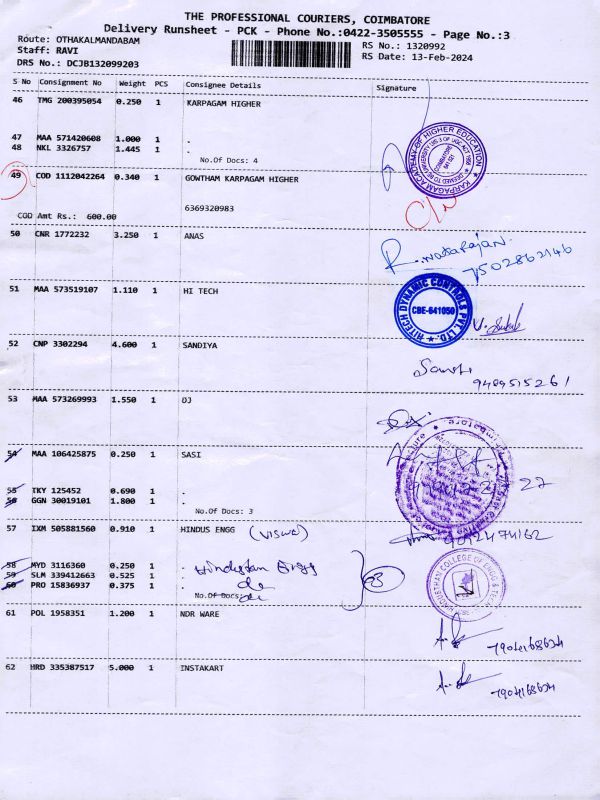 THE PROFESSIONAL COURIERS, COIMBATORE
Delivery Runsheet - PCK - Phone No.:0422-3505555 - Page No.:3
Route: OTHAKALMANDABAM
Staff: RAVI
RS No.: 1320992
DRS No.: DCJB132099203
RS Date: 13-Feb-2024
S No Consignment No Weight PCS Consignee Details Signature
46 TMG 200395054 0.250 1 KARPAGAM HIGHER
47 MAA 571420608 1.000 1 .
48 NKL 3326757 1.445 1 .
No.Of Docs: 4
KARPAGAM ACADEMY OF HIGHER EDUCATION
49 COD 1112042264 0.340 1 GOWTHAM KARPAGAM HIGHER
6369320983
COD Amt Rs.: 600.00
50 CNR 1772232 3.250 1 ANAS
R. Natarajan
7502862146
51 MAA 573519107 1.110 1 HI TECH
HITECH DYNAMIC CONTROLS PVT. LTD.
CBE-641050
52 CNP 3302294 4.600 1 SANDIYA
9489515261
53 MAA 573269993 1.550 1 DJ
54 MAA 106425875 0.250 1 SASI
55 TKY 125452 0.690 1 .
56 GGN 30019101 1.800 1 .
No.Of Docs: 3
57 IXM 505881560 0.910 1 HINDUS ENGG (VISWA)
9012474162
58 MYD 3116360 0.250 1 . Hindustan Engg
59 SLM 339412663 0.525 1 . do
60 PRO 15836937 0.375 1 . do
No.Of Docs:
3
HINDUSTHAN COLLEGE OF ENGG & TECH
61 POL 1958351 1.200 1 NDR WARE
7904168624
62 HRD 335387517 5.000 1 INSTAKART
7904168624